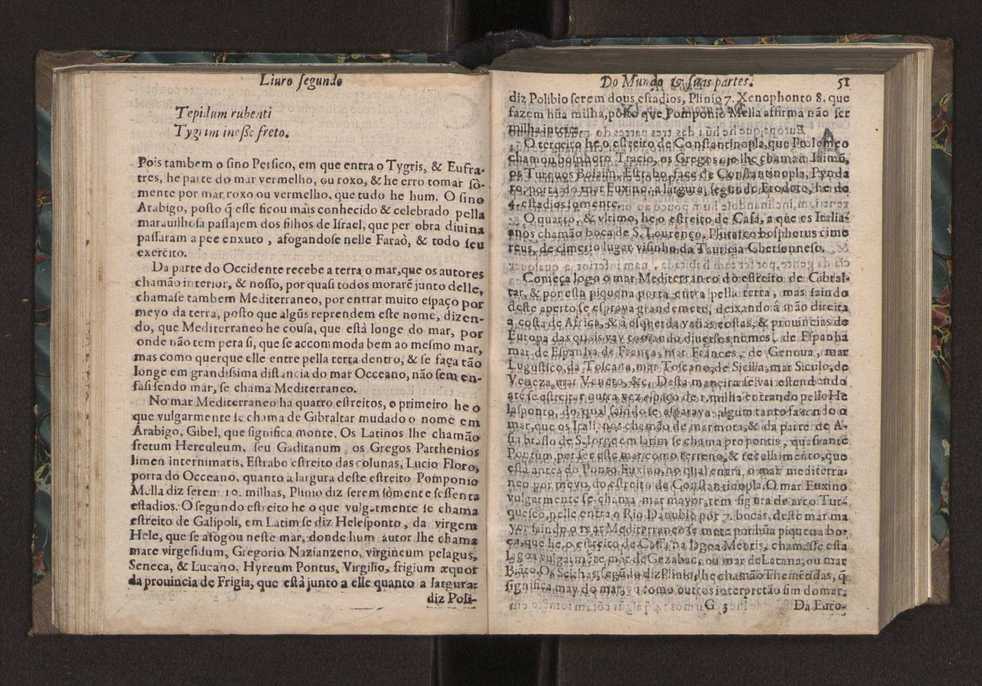 Liuro segundo
Tepidum rubenti
Tygrim inesse freto.
Pois tambem o sino Persico, em que entra o Tygris, & Eufra-
tres, he parte do mar vermelho, ou roxo, & he erro tomar sò-
mente por mar roxo ou vermelho, que tudo he hum. O sino
Arabigo, posto q̃ este ficou mais conhecido & celebrado pella
marauilhosa passajem dos filhos de Israel, que per obra diuina
passaram a pee enxuto, afogandose nelle Faraò, & todo seu
exercito.
Da parte do Occidente recebe a terra o mar, que os autores
chamão interior, & nosso, por quasi todos morarẽ junto delle,
chamase tambem Mediterraneo, por entrar muito espaço por
meyo da terra, posto que algũs reprendem este nome, dizen-
do, que Mediterraneo he cousa, que està longe do mar, por
onde não tem pera si, que se accommoda bem ao mesmo mar,
mas como querque elle entre pella terra dentro, & se faça tão
longe em grandissima distancia do mar Occeano, não sem en-
fasi sendo mar, se chama Mediterraneo.
No mar Mediterraneo ha quatro estreitos, o primeiro he o
que vulgarmente se chama de Gibraltar mudado o nome em
Arabigo, Gibel, que significa monte. Os Latinos lhe chamão
fretum Herculeum, seu Gaditanum, os Gregos Parthenios
limen internimatis, Estrabo estreito das colunas, Lucio Floro,
porta do Occeano, quanto a largura deste estreito Pomponio
Mella diz serem 10. milhas, Plinio diz serem sòmente sessenta
estadios. O segundo estreito he o que vulgarmente se chama
estreito de Galipoli, em Latim se diz Helesponto, da virgem
Hele, que se afogou neste mar, donde hum autor lhe chama
mare virgesidum, Gregorio Nazianzeno, virgineum pelagus,
Seneca, & Lucano, Hyreum Pontus, Virgilio, frigium æquor
da prouincia de Frigia, que està junto a elle quanto a largura:
diz Poli-
Do Mundo & suas partes. 51
diz Polibio serem dous estadios, Plinio 7. Xenophonto 8. que
fazem hũa milha, posto que Pomponio Mella affirma não ser
milha inteira.
O terceiro he o estreito de Constantinopla, que Ptolemeo
chamou bosphoro Tracio, os Gregos o lhe chamão
os Turquos Estrabo, face de Constantinopla, Pynda
ro, porta do mar Euxino, a largura, segundo Erodoto, he do
4. estadios somente.
O quarto, & vltimo, he o estreito de Cafà, a que os Italia-
anos chamão boca de S. Lourenço, Plutarco bosphorus cime
reus, de cimerio lugar visinho da Tauricia Chersonneso.
Começa logo o mar Mediterraneo do estreito de Gibral-
tar, & por esta piquena porta entra pella terra, mas saindo
deste aperto se esprava grandemente, deixando â mão direita
a costa de Africa, & â esquerda varias costas, & prouincias de
Europa das quais vay tomando diuersos nomes l. de Espanha
mar de Espanha de França, mar Frances, de Genoua, mar
Lugustico, da Toscana, mar Toscano, de Sicilia, mar Siculo, de
Veneza, mar Veneto, &c. Desta maneira se vai estendendo
atè se estreitar outra vez espaço de 1. milha entrando pello He
lesponto, do qual saindo se esparava algum tanto fazendo o
mar, que os Itali nos chamão de marmora, & da parte de A-
sia braço de S. Jorge em latim se chama propontis, quasi ante
Pontum, por ser este mar como terreno, & recolhimento, que
està antes do Ponto Euxino, no qual entra o mar mediterra-
neo por meyo, do estreito de Constantinopla. O mar Euxino
vulgarmente se chama mar mayor, tem figura de arco Tur-
quesco, nelle entra o Rio Danubio por 7. bocas, deste mar ma
yor saindo o mar Mediterraneo se mete por hũa piquena bo-
ca, que he o estreito de Caffa na lagoa Meotis, chamasse esta
Lagoa vulgarmente, mar de Gezabac, ou mar de Latana, ou mar
Os Scithas, segundo diz Plinio, lhe chamão Themeridas, q̃
significa may do mar, ou como outros interpretão fim do mar.
G 3 Da Euro-